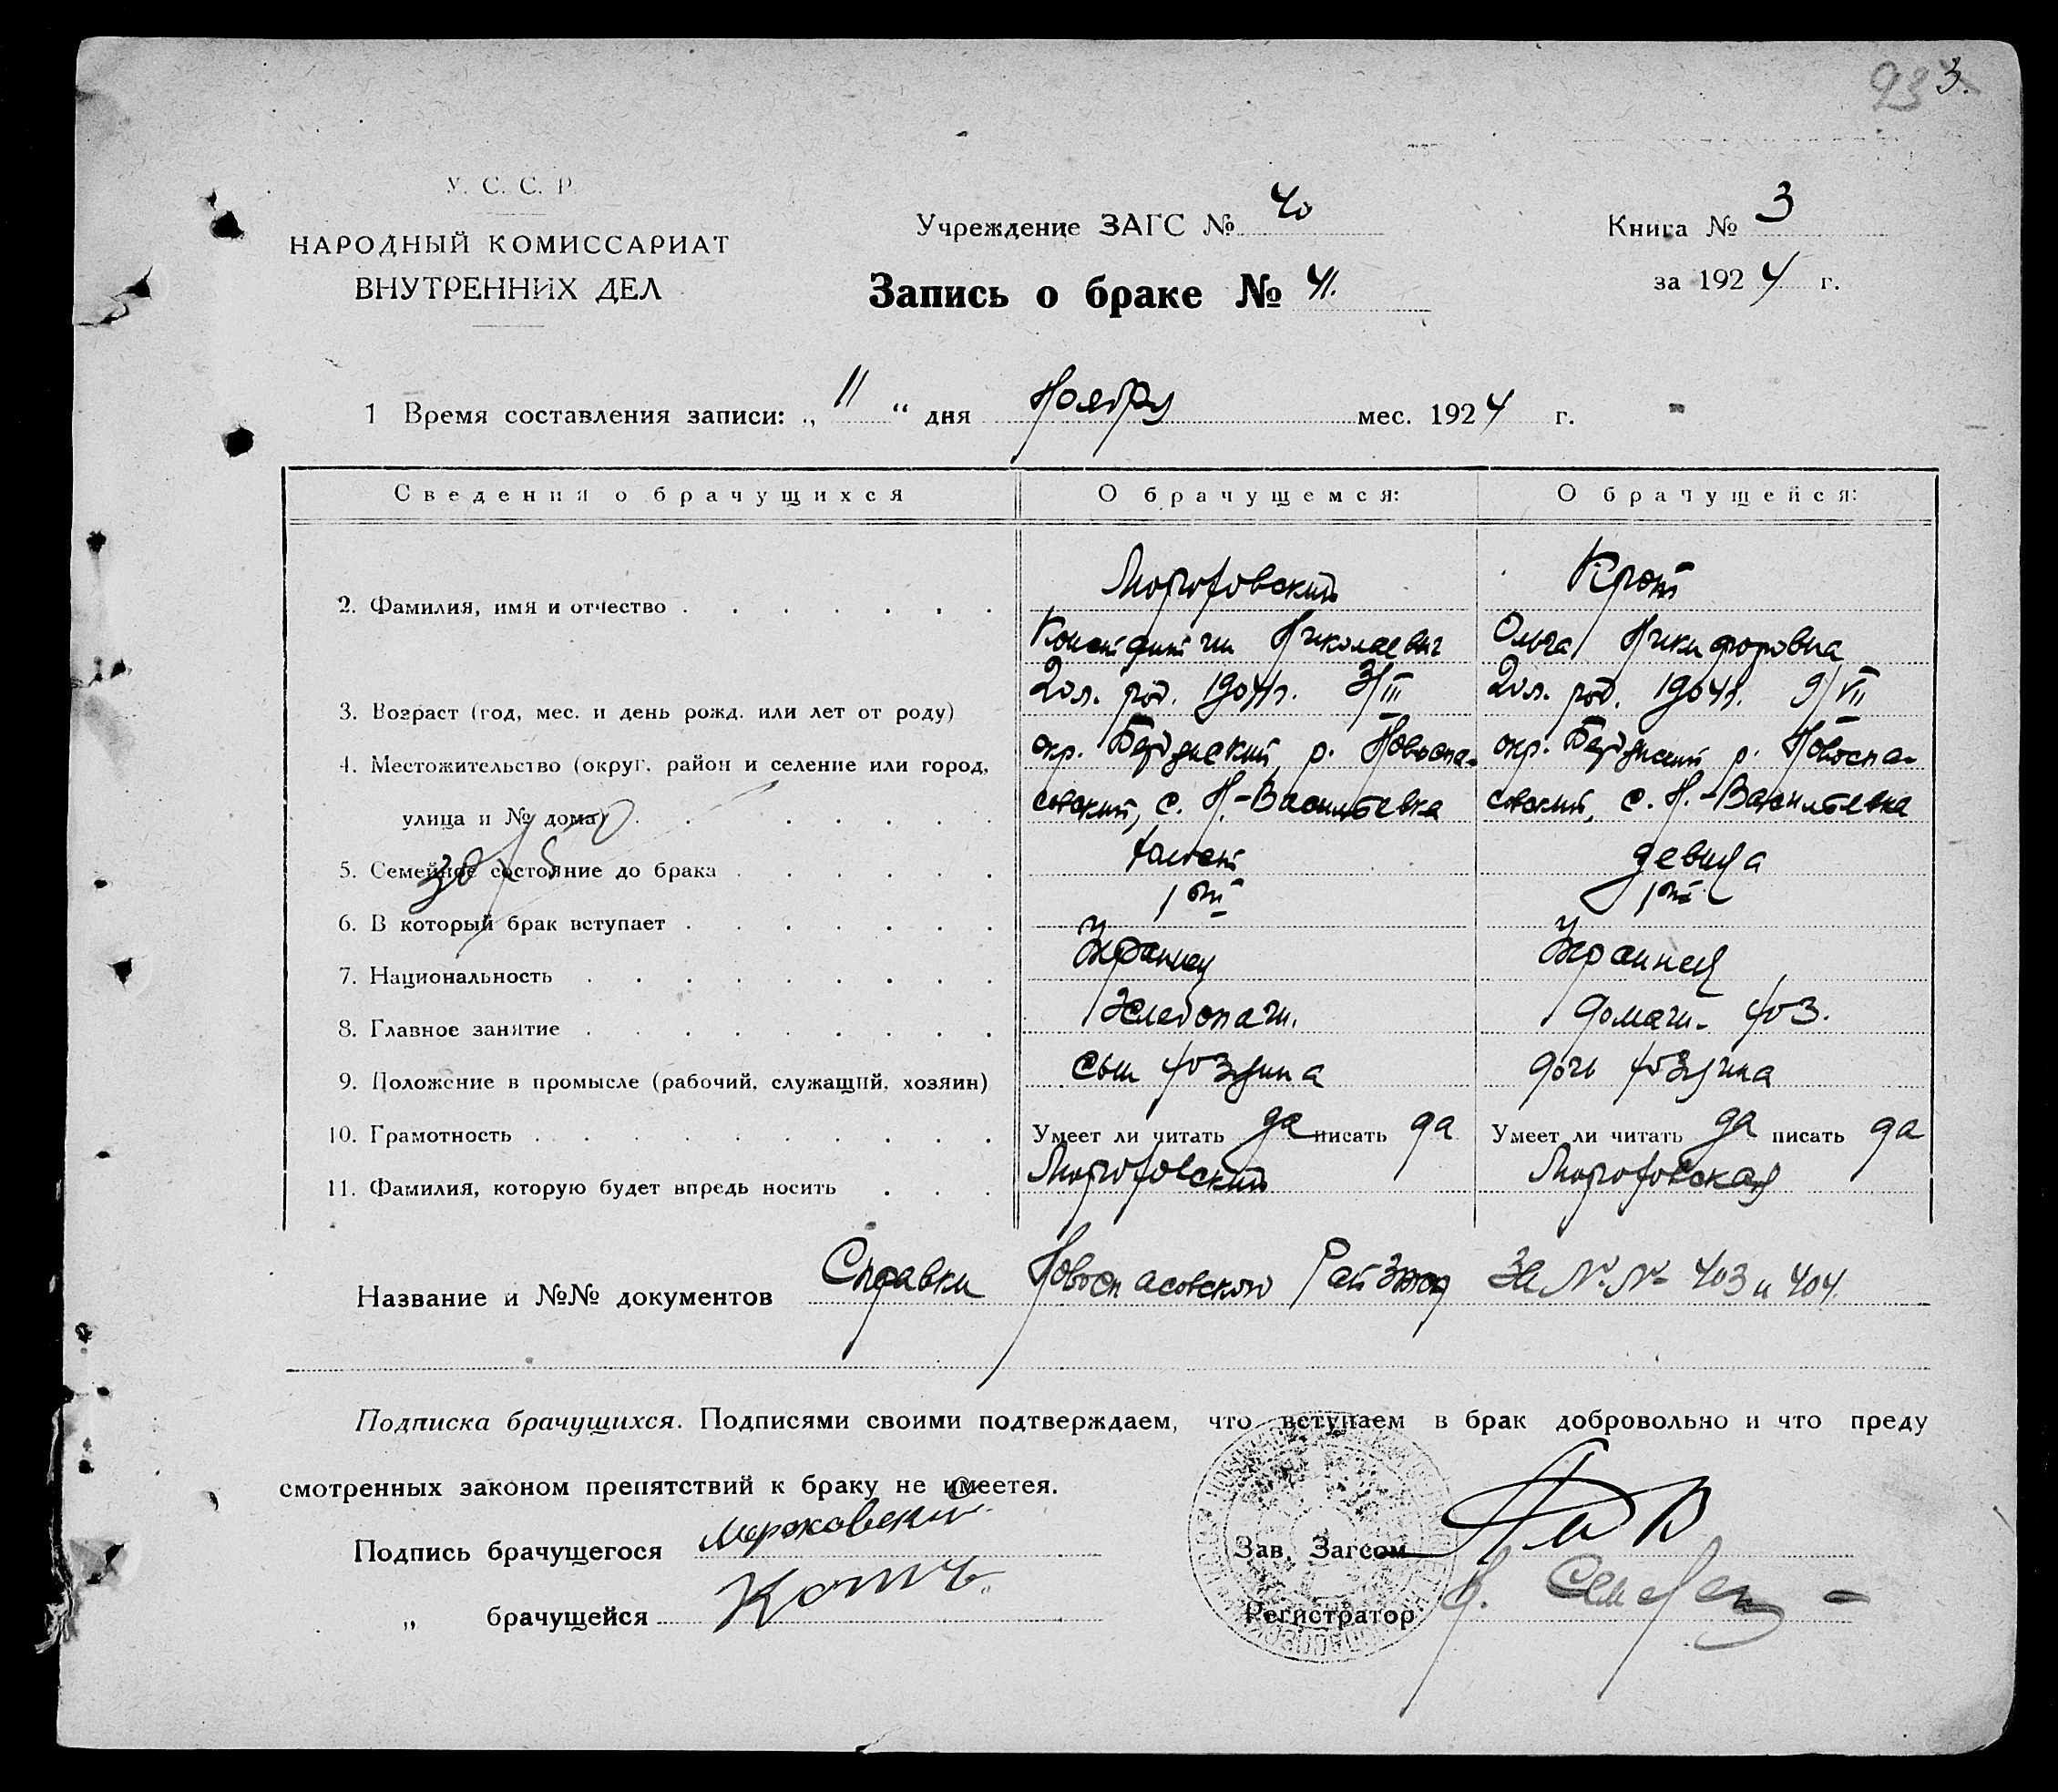 93 3.
У. С. С. Р.
НАРОДНЫЙ КОМИССАРИАТ
ВНУТРЕННИХ ДЕЛ
Учреждение ЗАГС № 40
Запись о браке № 41.
Книга № 3
за 1924 г.
1 Время составления записи: „ 11 “ дня Ноября мес. 1924 г.
Сведения о брачущихся О брачущемся: О брачущейся:
Крот
2. Фамилия, имя и отчество
Константин Николаевич Ольга Никифоровна
20 л. род. 1904 г. 3/III 20 л. род. 1904 г. 9/VII
3. Возраст (год, мес. и день рожд. или лет от роду)
окр. Бердянский, р. Новоспа- окр. Бердянский р. Новоспа-
4. Местожительство (округ, район и селение или город,
совский, с. Н.-Васильевка совский, с. Н.-Васильевка
улица и № дома)
холост девица
5. Семейное состояние до брака
1ый 1ый
6. В который брак вступает
Украинец Украинец
7. Национальность
Хлебопаш. домашн. хоз.
8. Главное занятие
сын хозяина дочь хозяина
9. Положение в промысле (рабочий, служащий, хозяин)
10. Грамотность Умеет ли читать да писать да Умеет ли читать да писать да
11. Фамилия, которую будет впредь носить
Название и №№ документов Справки Новоспасовского За №№ 403 и 404.
Подписка брачущихся. Подписями своими подтверждаем, что вступаем в брак добровольно и что преду
смотренных законом препятствий к браку не имеетея.
Подпись брачущегося
„ брачущейся
Зав. Загсом
Регистратор